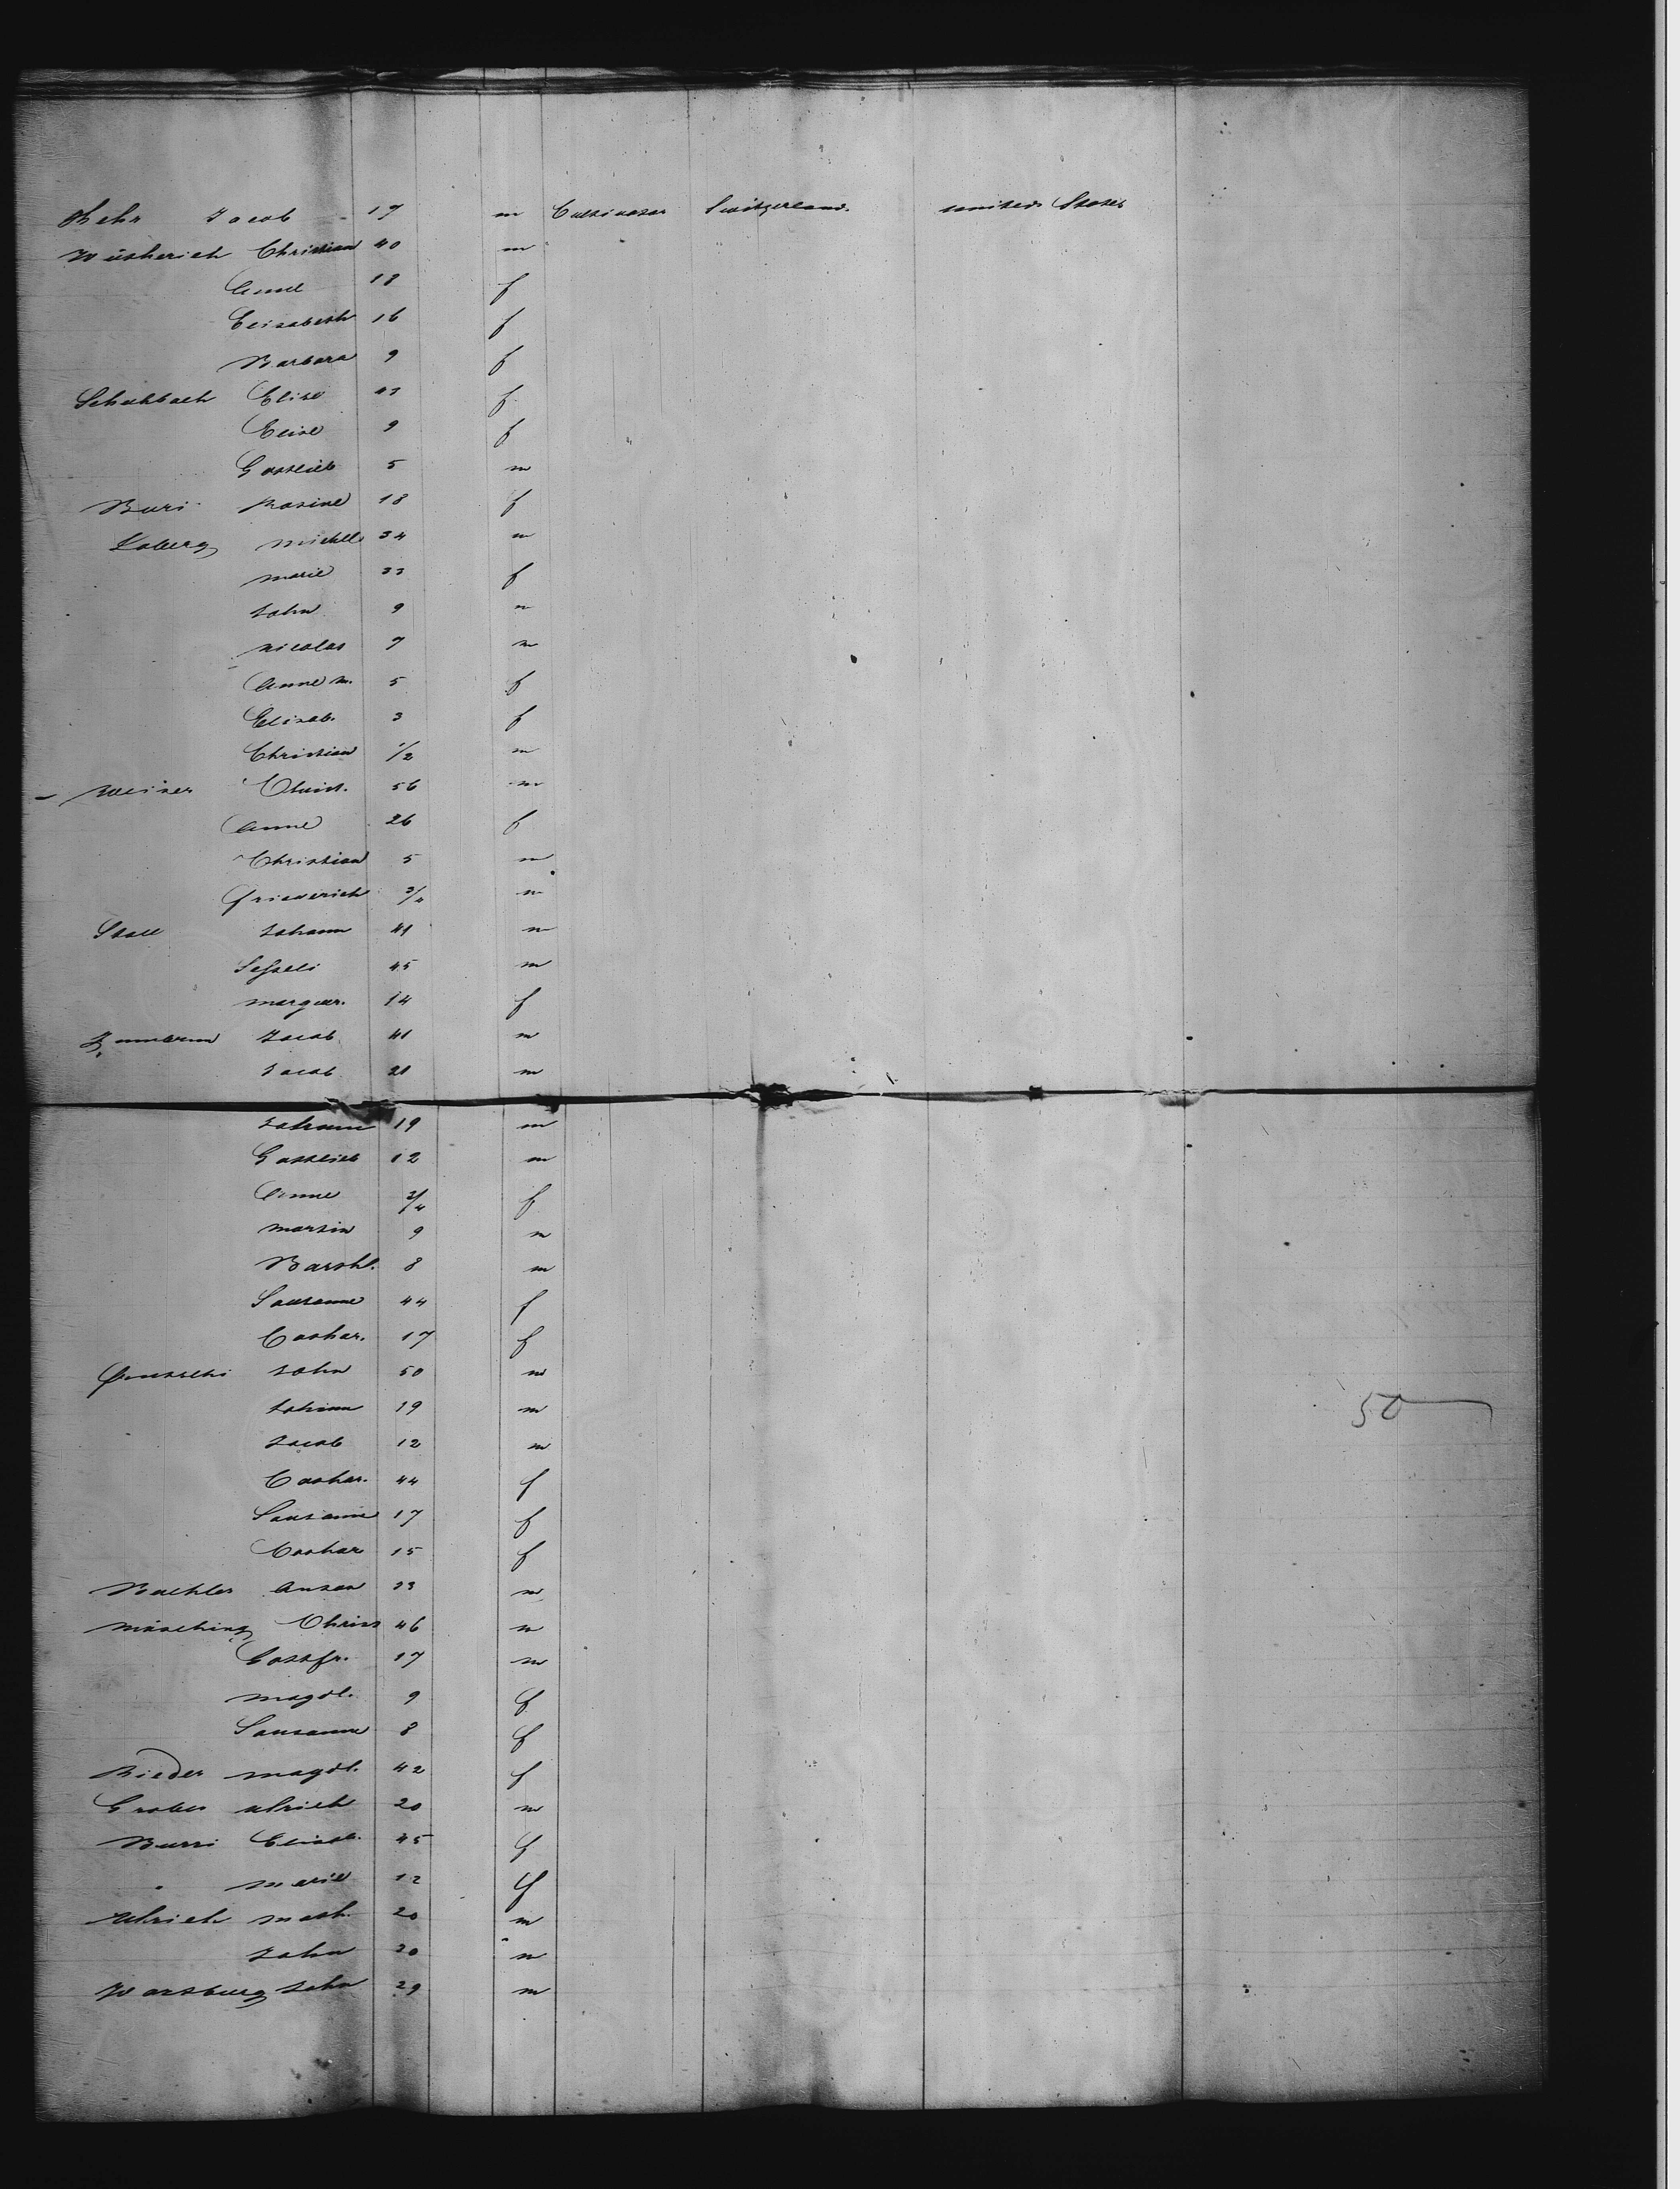 Jacob 19 m Cultivator Switzerland. united States
Wütherich Christian 40 m
Anne 18 f
Elisabeth 16 f
Barbara 9 f
Schuhbach Elise 43 f
Elise 9 f
Gottlieb 5 m
Buri Rosine 18 f
michel 34 m
marie 33 f
John 9 m
nicolas 7 m
Anne m. 5 f
Elisab. 3 f
Christian 1/2 m
Christ. 56 m
Anne 26 f
Christian 5 m
Friederich 3/4 m
Stall Johann 41 m
45 m
margar. 14 f
Jacob 41 m
Jacob 21 m
Johann 19 m
Gottlieb 12 m
Anne 3/4 f
martin 9 m
Barth. 8 m
Sausanne 44 f
Cathar. 17 f
John 50 m
Johann 19 m
Jacob 12 m
50
Cathar. 44 f
Sausanne 17 f
Cathar 15 f
Buehler Anton 23 m
mösching Christ 46 m
Gottfr. 17 m
magdl. 9 f
Sausanne 8 f
Rieder magdl. 42 f
Ulrich 20 m
Burri Elisab. 45 f
" marie 12 f
Ulrich math. 20 m
John 20 m
Wartburg John 29 m